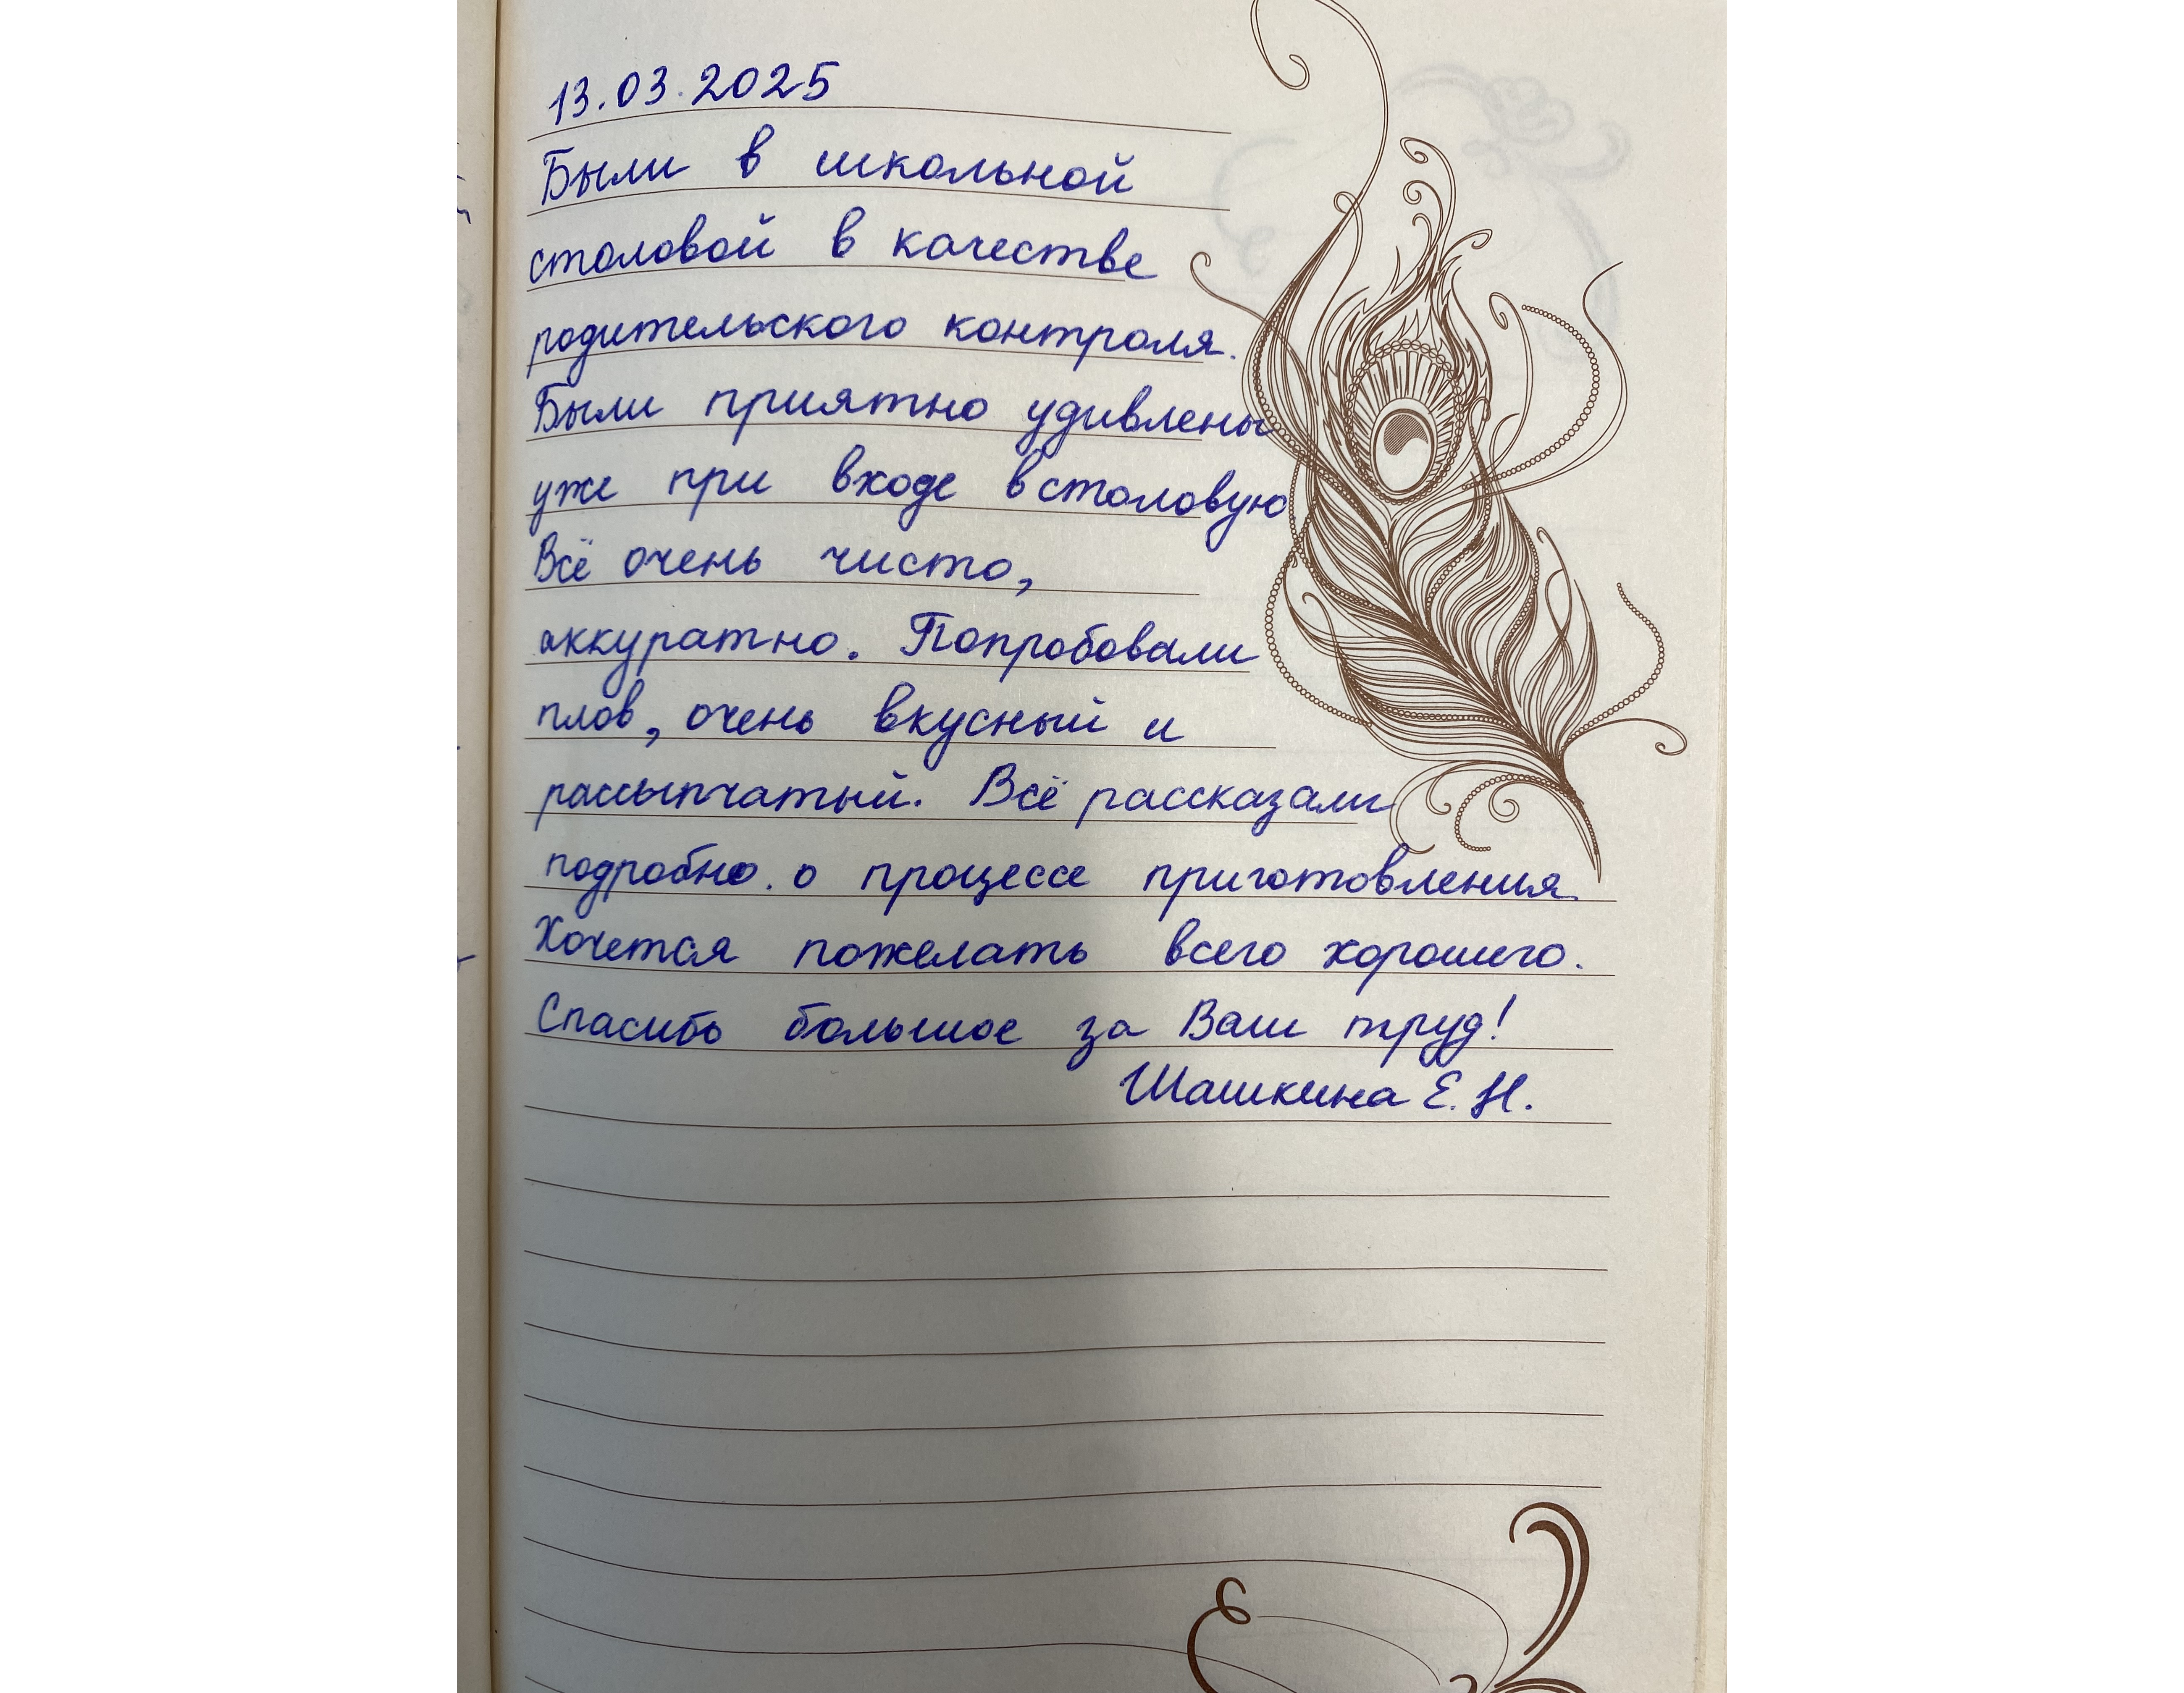 13.03.2025
Были в школьной
столовой в качестве
родительского контроля.
Были приятно удивлены
уже при входе в столовую.
Всё очень чисто,
аккуратно. Попробовали
плов, очень вкусный и
рассыпчатый. Всё рассказали
подробно о процессе приготовления.
Хочется пожелать всего хорошего.
Спасибо большое за Ваш труд!
Шашкина Е.Н.